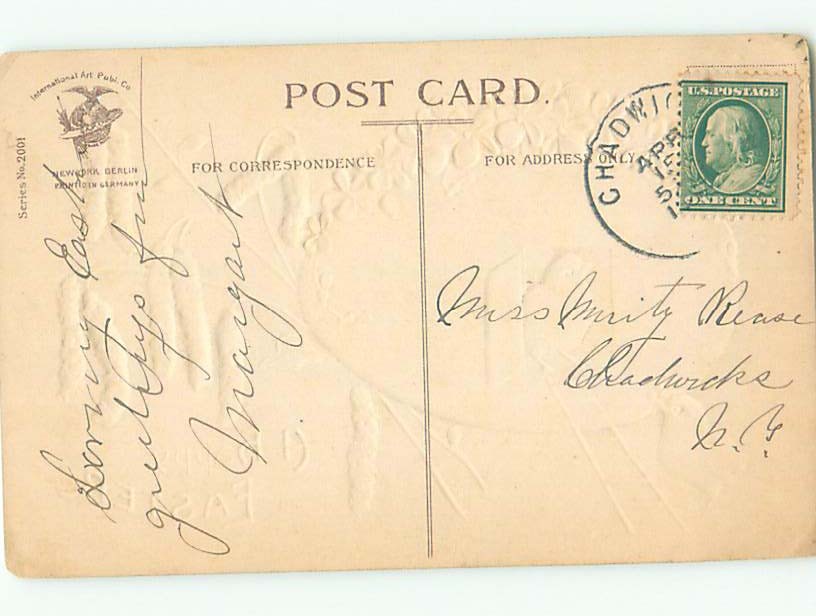 International Art Publ. Co
NEW YORK BERLIN
PRINTED IN GERMANY
Series No. 2001
POST CARD.
FOR CORRESPONDENCE
FOR ADDRESS ONLY
CHADWIC
APR
U.S. POSTAGE
ONE CENT
Loving East
greetings from
Margart
Miss Murty Rease
Chadwicks
N.Y.
EASTE